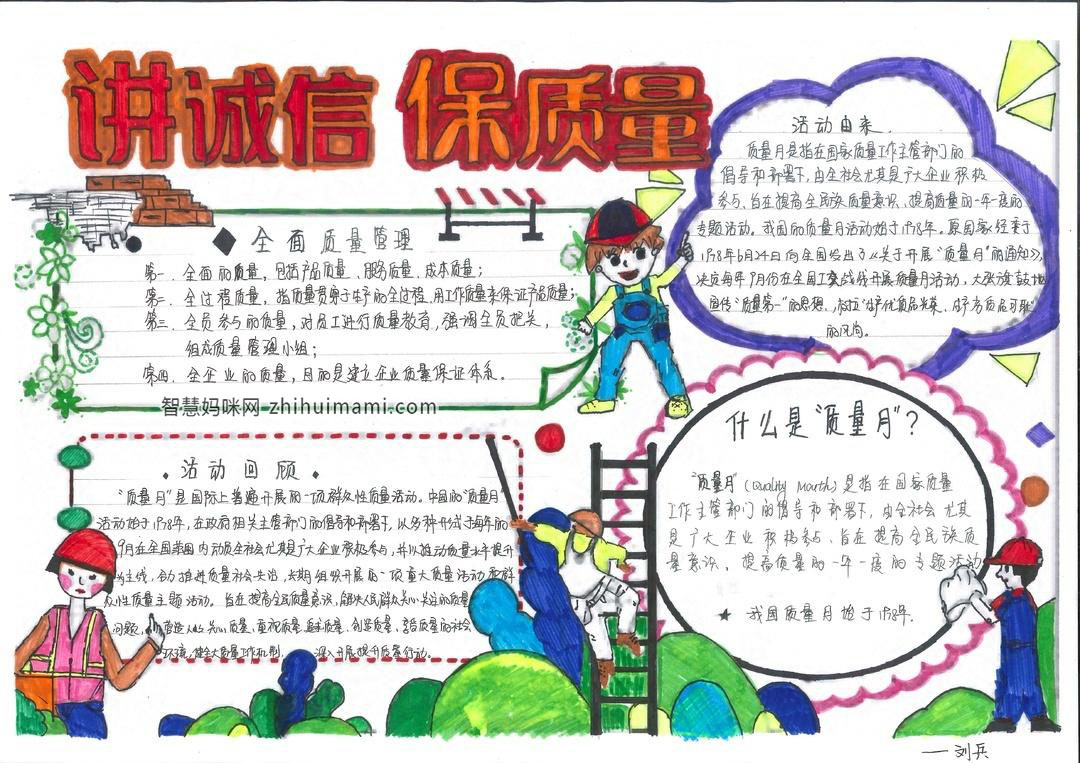 讲诚信 保质量
全面质量管理
第一、全面的质量,包括产品质量、服务质量、成本质量;
第二、全过程质量,指质量贯穿于生产的全过程,用工作质量来保证产品质量;
第三、全员参与的质量,对员工进行质量教育,强调全员把关,
组成质量管理小组;
第四、全企业的质量,目的是建立企业质量保证体系。
智慧妈咪网 zhihuimami.com
活动由来
质量月是指在国家质量工作主管部门的
倡导和部署下,由全社会尤其是广大企业积极
参与、旨在提高全民族质量意识、提高质量的一年一度的
专题活动。我国的质量月活动始于1978年。原国家经委于
1978年6月24日向全国发出了《关于开展“质量月”的通知》,
决定每年9月份在全国工交战线开展质量月活动,大张旗鼓地
宣传“质量第一”的思想,树立“生产优质品光荣、生产劣质品可耻”
的风尚。
活动回顾
“质量月”是国际上普遍开展的一项群众性质量活动。中国的“质量月”
活动始于1978年,在政府相关主管部门的倡导和部署下,以多种形式于每年的
9月在全国范围内动员全社会尤其是广大企业积极参与,并以推动质量水平提升
为主线,合力推进质量社会共治,长期组织开展的一项重大质量活动
众性质量主题活动。旨在提高全民质量意识,解决人民群众关心关注的质量
问题,营造人人关心质量、重视质量、创造质量、享受质量的社会
环境,健全质量工作机制,深入开展提升质量行动。
什么是“质量月”?
“质量月”(Quality Month)是指在国家质量
工作主管部门的倡导和部署下,由全社会尤其
是广大企业积极参与、旨在提高全民族质
量意识、提高质量的一年一度的专题活动
★ 我国质量月始于1978年。
——刘兵